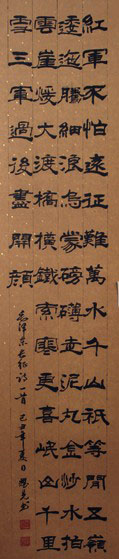 紅軍不怕遠征難萬水千山祇等閒五嶺
逶迤騰細浪烏蒙磅礴走泥丸金沙水拍
雲崖暖大渡橋橫鐵索寒更喜岷山千里
雪三軍過後盡開顏
毛澤東長征詩一首 己丑年夏日 書